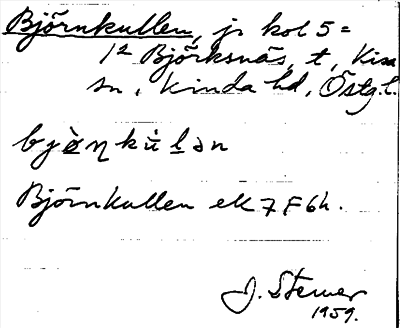 Björnkullen, jr kol 5 =
1² Björksnäs, t, Kisa
sn, Kinda hd, Östg.l.
bjö̀ŋkùlən
Björnkullen ek 7 F 6h.
J. Sterner
1959.